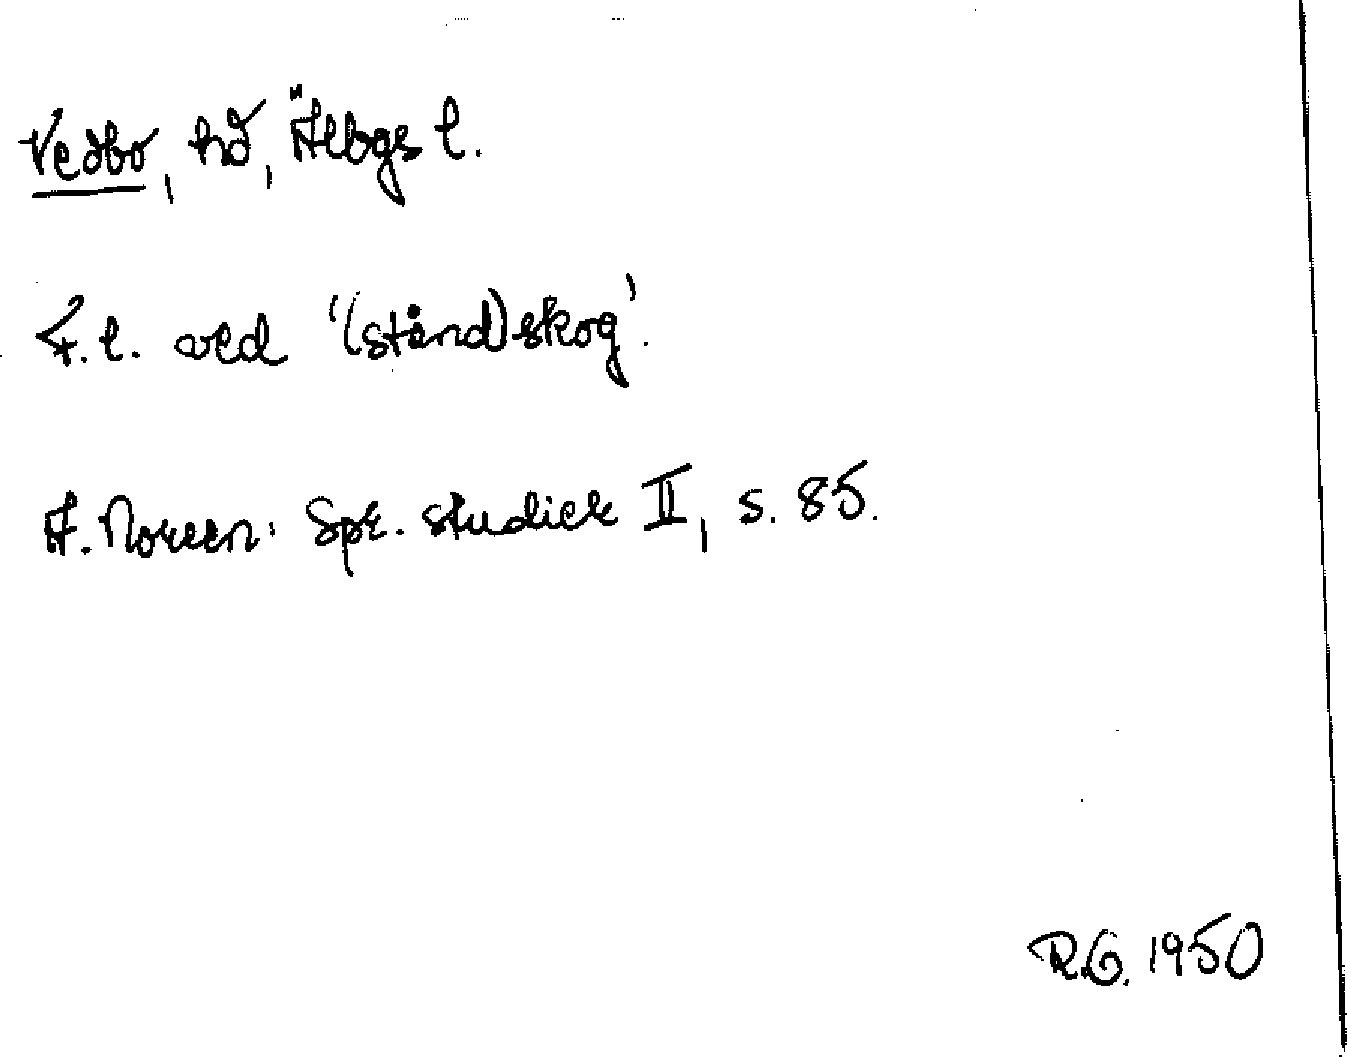 Vedbo, hd, Älvbgs l.
F.l. ved '(stånd)skog'.
A. Noreen: Spr. studier II, s. 85.
R.G. 1950